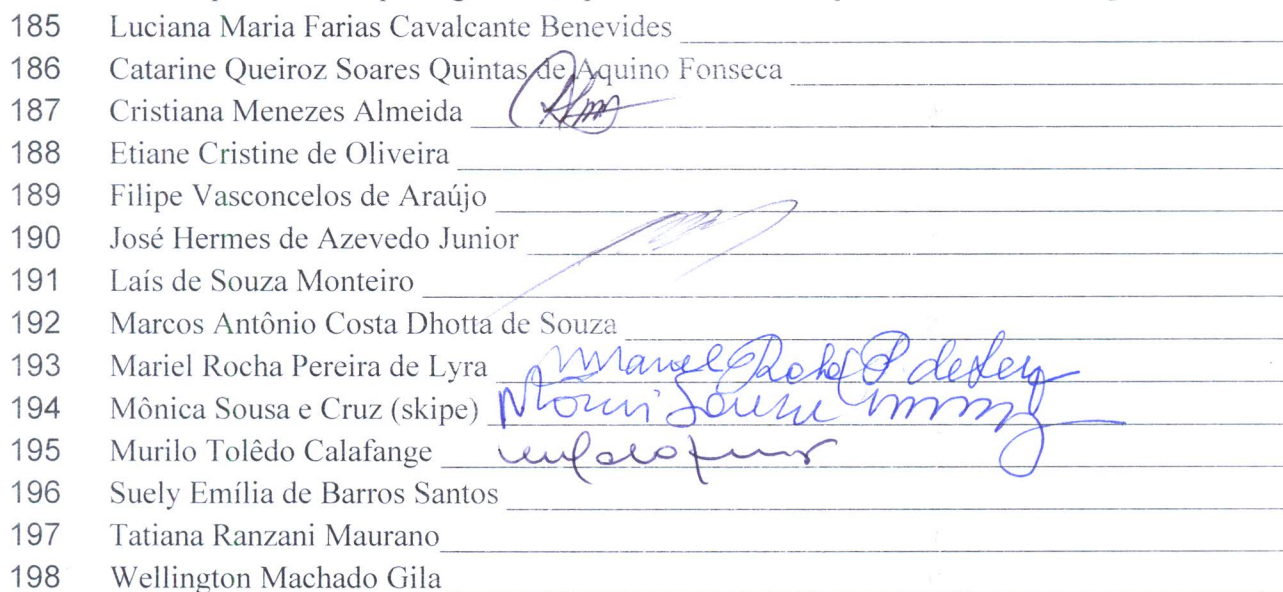 185 Luciana Maria Farias Cavalcante Benevides
186 Catarine Queiroz Soares Quintas de Aquino Fonseca
187 Cristiana Menezes Almeida
188 Etiane Cristine de Oliveira
189 Filipe Vasconcelos de Araújo
190 José Hermes de Azevedo Junior
191 Laís de Souza Monteiro
192 Marcos Antônio Costa Dhotta de Souza
193 Mariel Rocha Pereira de Lyra
194 Mônica Sousa e Cruz (skipe)
195 Murilo Tolêdo Calafange
196 Suely Emília de Barros Santos
197 Tatiana Ranzani Maurano
198 Wellington Machado Gila